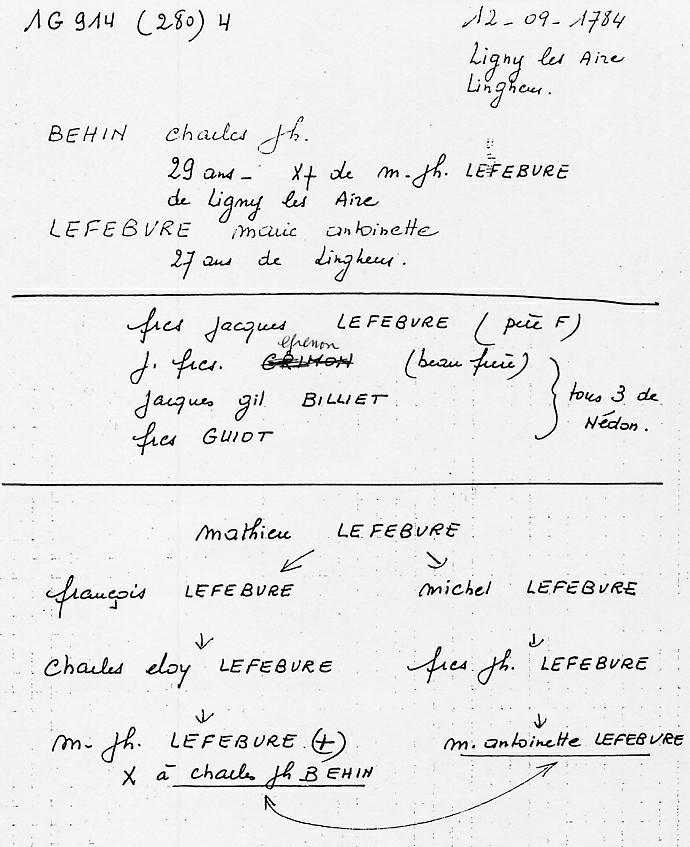 1G 914 (280) 4
12-09-1784
Ligny les Aire
Linghem.
BEHIN Charles Jh.
29 ans - X+ de m. Jh. LEFEBURE
de Ligny les Aire
LEFEBURE marie antoinette
27 ans de Linghem.
frcs Jacques LEFEBURE (père F)
efrenon
J. frcs. GRIMON (beau frère)
Jacques gil BILLIET
tous 3 de
frcs GUIOT
Nédon.
mathieu LEFEBURE
françois LEFEBURE
michel LEFEBURE
Charles eloy LEFEBURE
frcs Jh. LEFEBURE
m. Jh. LEFEBURE (+)
m. antoinette LEFEBURE
X à Charles Jh BEHIN